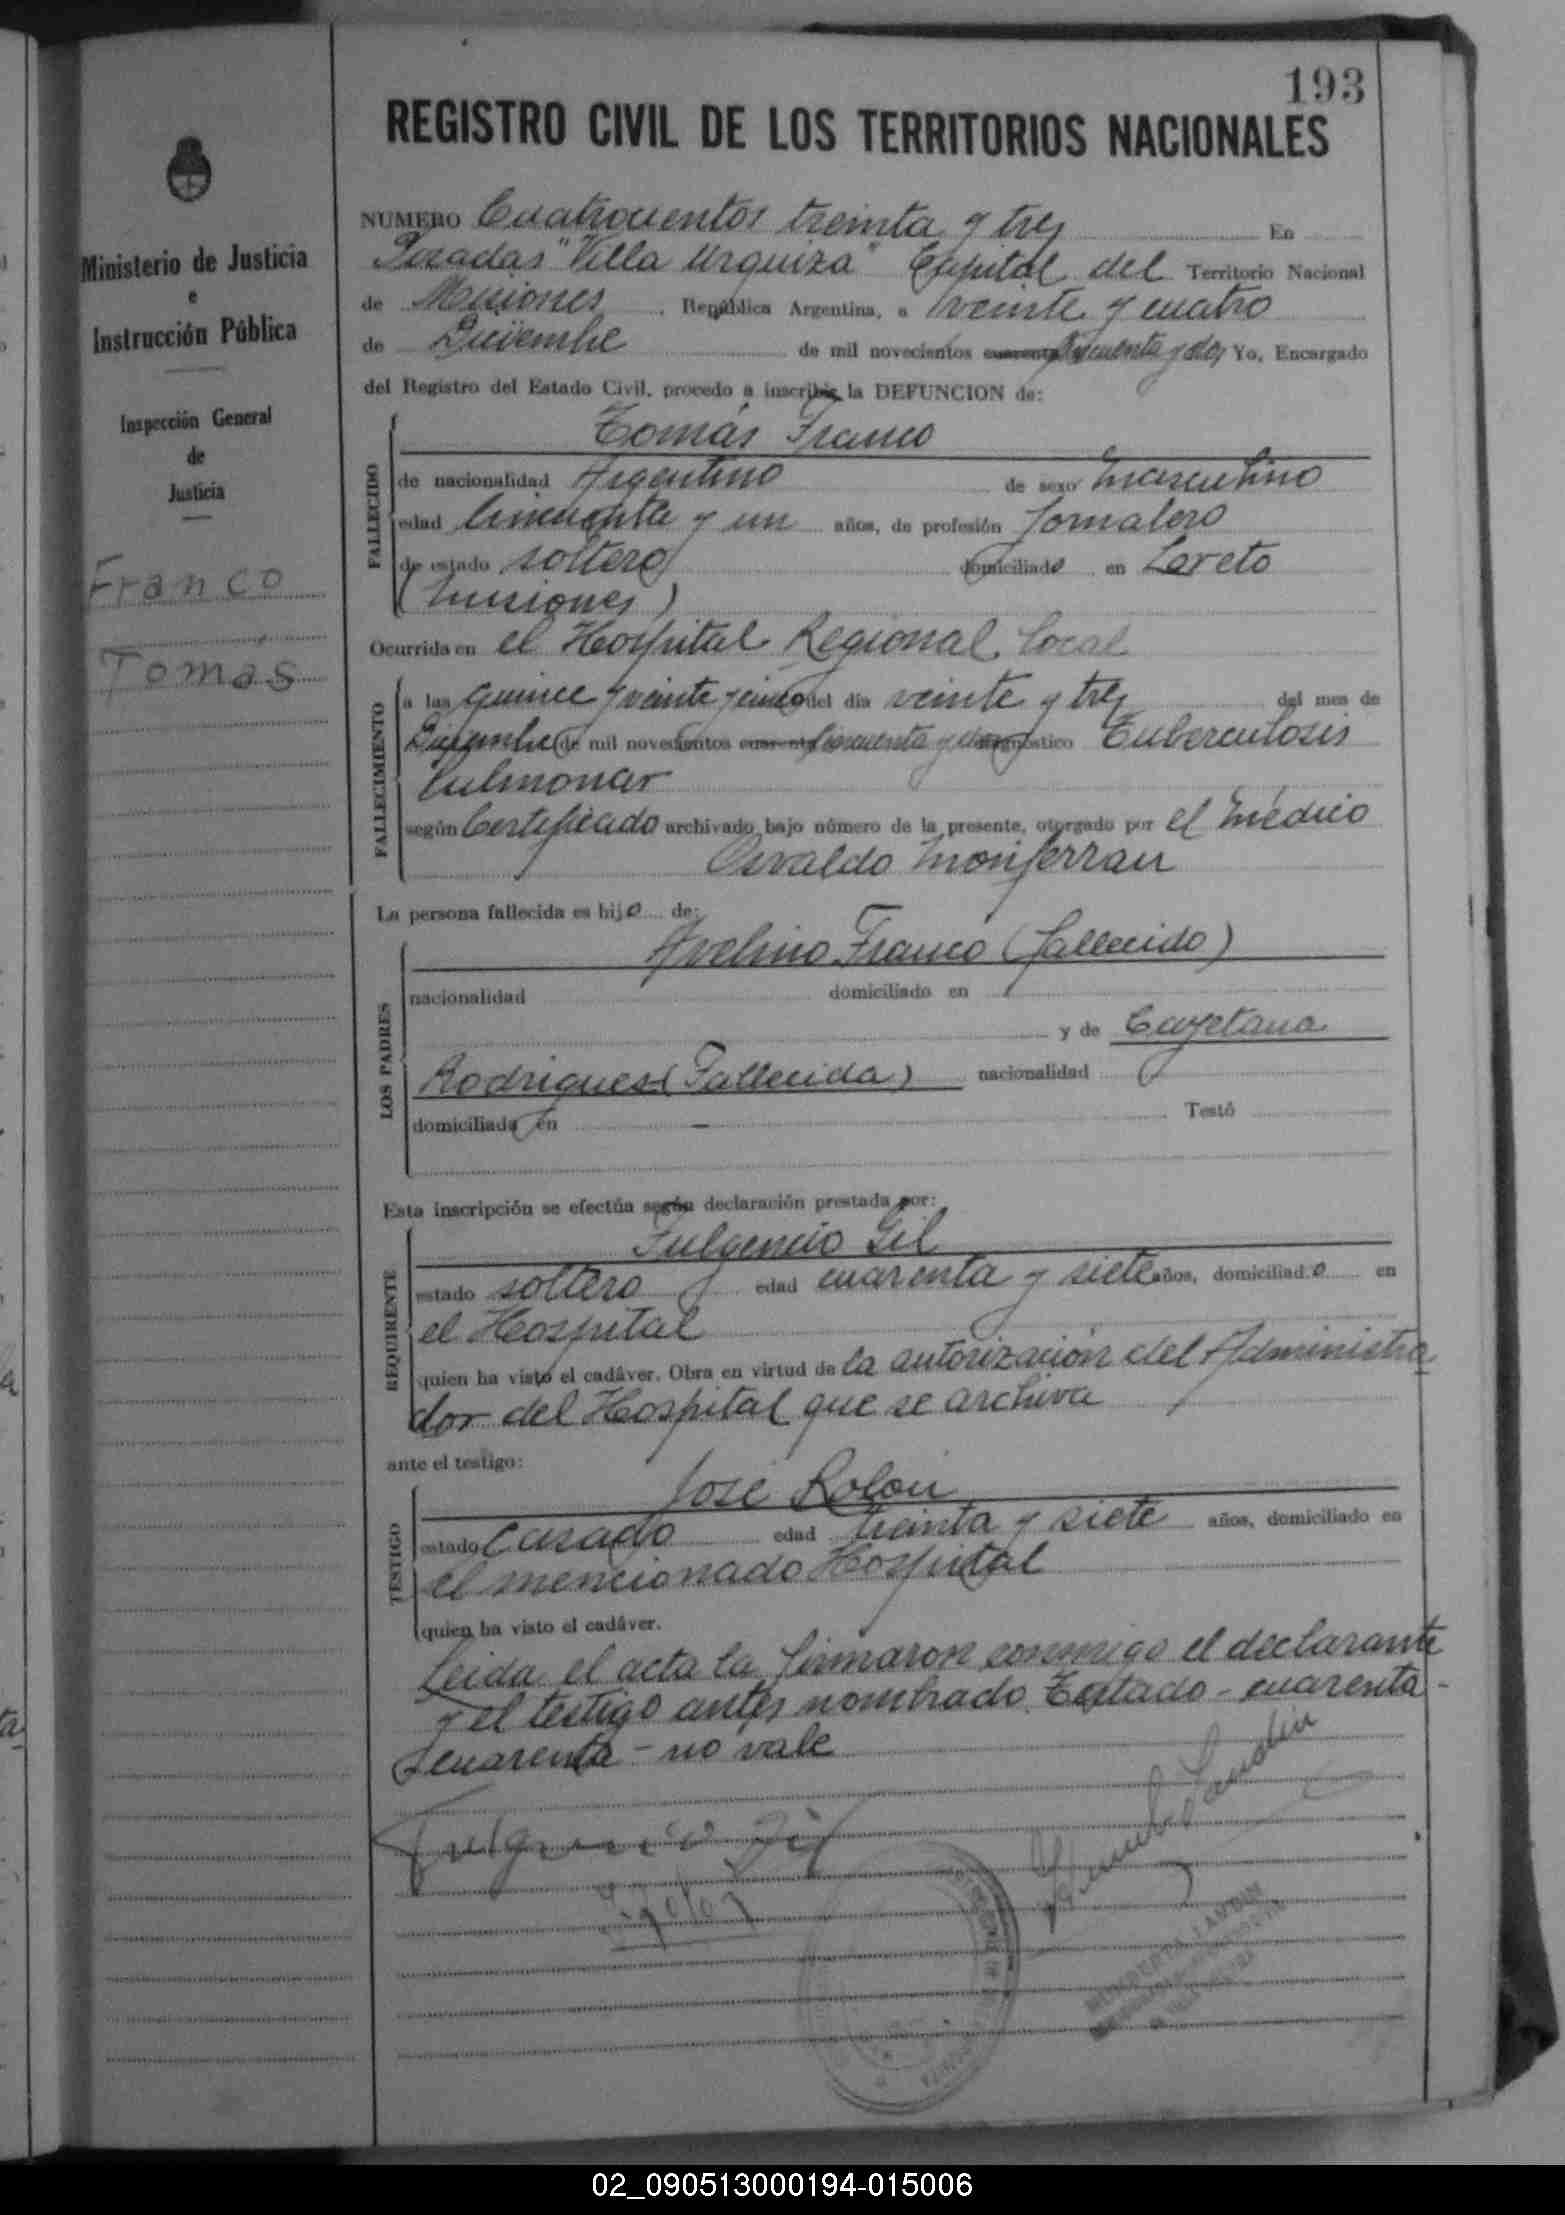 193
REGISTRO CIVIL DE LOS TERRITORIOS NACIONALES
Ministerio de Justicia
e
Instrucción Pública
Inspección General
de
Justicia
Franco
Tomás
NUMERO Cuatrocientos treinta y tres En
Posadas "Villa Urquiza" Capital del Territorio Nacional
de Misiones, República Argentina, a veinte y cuatro
de Diciembre de mil novecientos cuarenta cincuenta y dos Yo, Encargado
del Registro del Estado Civil, procedo a inscribir la DEFUNCION de:
FALLECIDO
Tomás Franco
de nacionalidad Argentino de sexo masculino
edad cincuenta y un años, de profesión Jornalero
de estado soltero domiciliado en Loreto
(Misiones)
Ocurrida en el Hospital Regional local
FALLECIMIENTO
a las quince y veinte y cinco del día veinte y tres del mes de
Diciembre de mil novecientos cuarenta cincuenta y dos diagnóstico Tuberculosis
Pulmonar
según Certificado archivado bajo número de la presente, otorgado por el médico
Osvaldo Monferrau
La persona fallecida es hijo de:
LOS PADRES
Avelino Franco (fallecido)
nacionalidad domiciliado en
y de Cayetana
Rodrigues (Fallecida) nacionalidad
domiciliada en — Testó
Esta inscripción se efectúa según declaración prestada por:
REQUIRENTE
Fulgencio Gil
estado soltero edad cuarenta y siete años, domiciliado en
el Hospital
quien ha visto el cadáver. Obra en virtud de la autorización del Administra
dor del Hospital que se archiva
ante el testigo:
TESTIGO
José Rolon
estado Casado edad treinta y siete años, domiciliado en
el mencionado Hospital
quien ha visto el cadáver.
Leida el acta la firmaron conmigo el declarante
y el testigo antes nombrado. Testado - cuarenta -
cuarenta - no vale
Fulgencio Gil
02_090513000194-015006